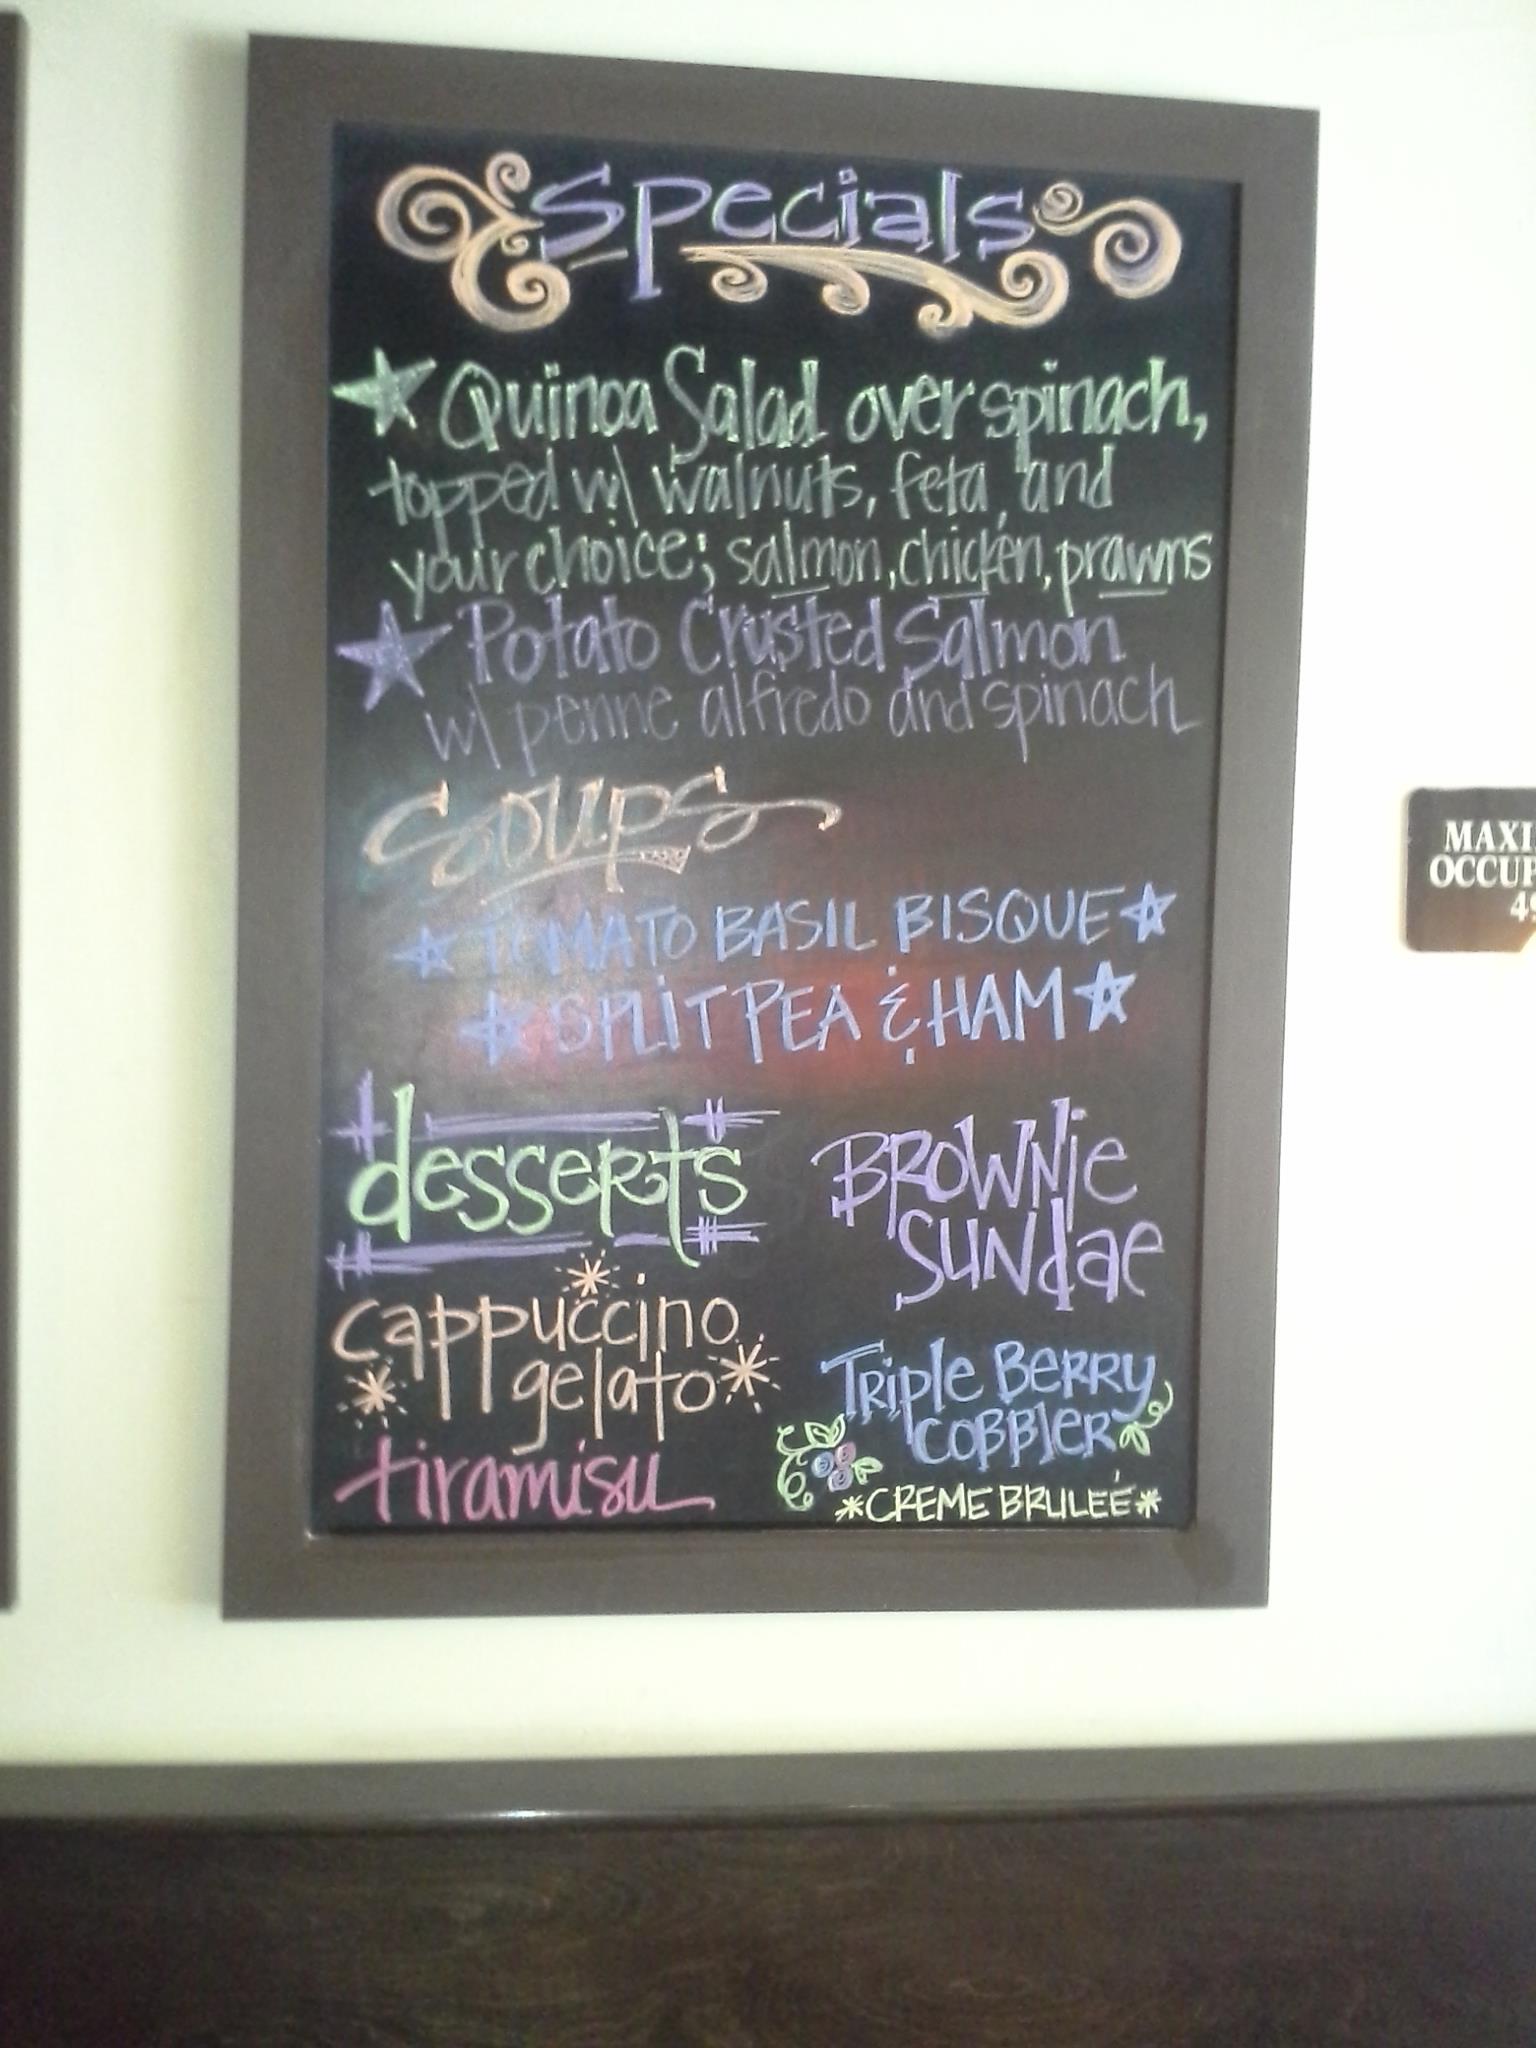 Specials
Quinoa Salad over spinach,
topped w/ walnuts, feta, and
your choice; salmon, chicken, prawns
Potato Crusted Salmon
w/ penne alfredo and spinach
Soups
TOMATO BASIL BISQUE
SPLIT PEA & HAM
desserts
cappuccino
gelato
tiramisu
BROWNie
SUNdae
TRiple BeRRY
COBBleR
*CREME BRULEÉ*
MAXI
OCCUP